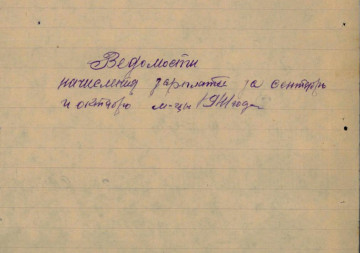 Ведомости
начисления зарплаты за сентябрь
и октябрь м-цы 1941 года